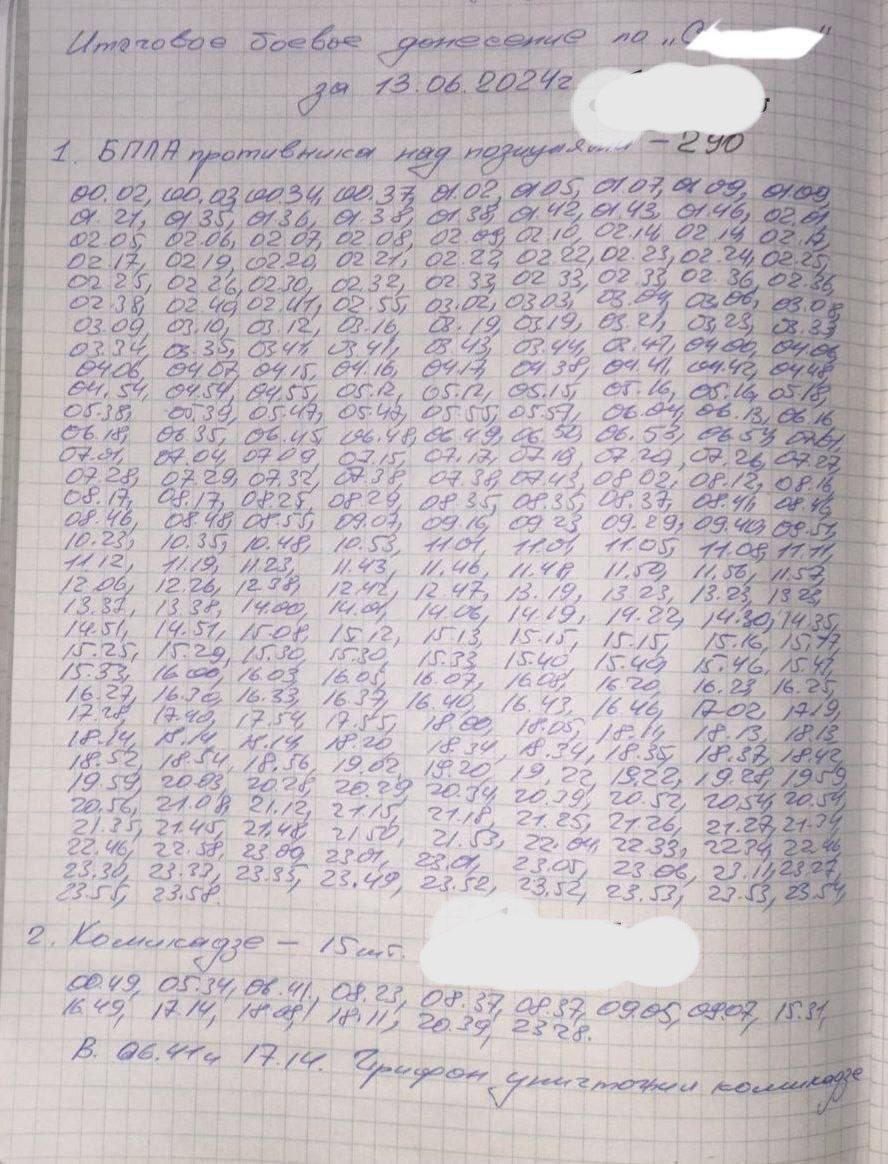 Итоговое боевое донесение по „С "
за 13.06.2024г.
1. БПЛА противника над позициями – 290
00.02, 00.03, 00.34, 00.37, 01.02, 01.05, 01.07, 01.09, 01.09,
01.21, 01.35, 01.36, 01.38, 01.38, 01.42, 01.43, 01.46, 02.01
02.05, 02.06, 02.07, 02.08, 02.09, 02.10, 02.14, 02.14, 02.17,
02.17, 02.19, 02.20, 02.21, 02.22, 02.22, 02.23, 02.24, 02.25,
02.25, 02.26, 02.30, 02.32, 02.33, 02.33, 02.33, 02.36, 02.36,
02.38, 02.40, 02.41, 02.55, 03.02, 03.03, 03.04, 03.06, 03.08,
03.09, 03.10, 03.12, 03.16, 03.19, 03.19, 03.21, 03.23, 03.33
03.34, 03.35, 03.41, 03.41, 03.43, 03.44, 03.47, 04.00, 04.06
04.06, 04.07, 04.15, 04.16, 04.17, 04.38, 04.41, 04.42, 04.48
04.54, 04.54, 04.55, 05.12, 05.12, 05.15, 05.16, 05.16, 05.18,
05.38, 05.39, 05.47, 05.47, 05.55, 05.57, 06.04, 06.13, 06.16
06.18, 06.35, 06.45, 06.48, 06.49, 06.50, 06.53, 06.54, 07.01,
07.01, 07.04, 07.09, 07.15, 07.17, 07.19, 07.20, 07.26, 07.27,
07.28, 07.29, 07.32, 07.38, 07.38, 07.43, 08.02, 08.12, 08.16
08.17, 08.17, 08.25, 08.29, 08.35, 08.35, 08.37, 08.41, 08.46
08.46, 08.48, 08.55, 09.07, 09.16, 09.23, 09.29, 09.40, 09.51,
10.23, 10.35, 10.48, 10.53, 11.01, 11.01, 11.05, 11.08, 11.11,
11.12, 11.19, 11.23, 11.43, 11.46, 11.48, 11.50, 11.56, 11.57,
12.06, 12.26, 12.38, 12.42, 12.47, 13.19, 13.23, 13.23, 13.23,
13.37, 13.38, 14.00, 14.01, 14.06, 14.19, 14.22, 14.30, 14.35,
14.51, 14.51, 15.08, 15.12, 15.13, 15.15, 15.15, 15.16, 15.17,
15.25, 15.29, 15.30, 15.30, 15.33, 15.40, 15.40, 15.46, 15.47,
15.53, 16.00, 16.03, 16.05, 16.07, 16.08, 16.20, 16.23, 16.25,
16.27, 16.30, 16.33, 16.37, 16.40, 16.43, 16.46, 17.02, 17.19,
17.28, 17.40, 17.54, 17.55, 18.00, 18.05, 18.11, 18.13, 18.13
18.14, 18.14, 18.14, 18.20, 18.34, 18.34, 18.35, 18.37, 18.42,
18.52, 18.54, 18.56, 19.02, 19.20, 19.22, 19.22, 19.28, 19.59,
19.59, 20.03, 20.28, 20.29, 20.34, 20.39, 20.52, 20.54, 20.54,
20.56, 21.08, 21.12, 21.15, 21.18, 21.25, 21.26, 21.27, 21.34,
21.35, 21.45, 21.48, 21.50, 21.53, 22.04, 22.33, 22.34, 22.46
22.46, 22.58, 23.00, 23.01, 23.01, 23.05, 23.06, 23.11, 23.27,
23.30, 23.33, 23.35, 23.49, 23.52, 23.52, 23.53, 23.53, 23.54,
23.55, 23.58.
2. Комикадзе – 15 шт.
00.49, 05.34, 06.41, 08.23, 08.37, 08.37, 09.05, 09.07, 15.31,
16.49, 17.14, 18.08, 18.11, 20.39, 23.28.
В. 06.41 и 17.14. Грифон уничтожил комикадзе